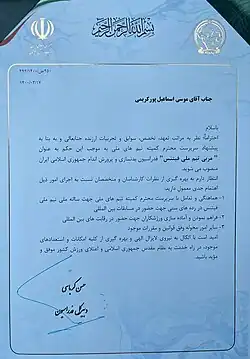 بسم الله الرحمن الرحیم
جناب آقای موسی اسماعیل پورکریمی
باسلام
احتراماً نظر به مراتب تعهد، تخصص، سوابق و تجربیات ارزنده جنابعالی و به بنا به
پیشنهاد سرپرست محترم کمیته تیم های ملی به موجب این حکم به عنوان
"مربی تیم ملی فیتنس" فدراسیون بدنسازی و پرورش اندام جمهوری اسلامی ایران
منصوب می شوید.
انتظار دارم به بهره گیری از نظرات کارشناسان و متخصصان نسبت به اجرای امور ذیل
اهتمام جدی معمول دارید.
۱- هماهنگی و تعامل با سرپرست محترم کمیته تیم های ملی جهت ساله ملی تیم ملی
فیتنس در رده های سنی جهت حضور در مسابقات بین المللی
۲- فراهم نمودن و آماده سازی ورزشکاران جهت حضور در رقابت های بین المللی
۳- سایر امور محوله وفق قوانین و مقررات موجود.
امید است با اتکال به نیروی لایزال الهی و بهره گیری از کلیه امکانات و استعدادهای
موجود، در راه خدمت به نظام مقدس جمهوری اسلامی و اعتلای ورزش کشور موفق و
مؤید باشید.
دبیر کل فدراسیون